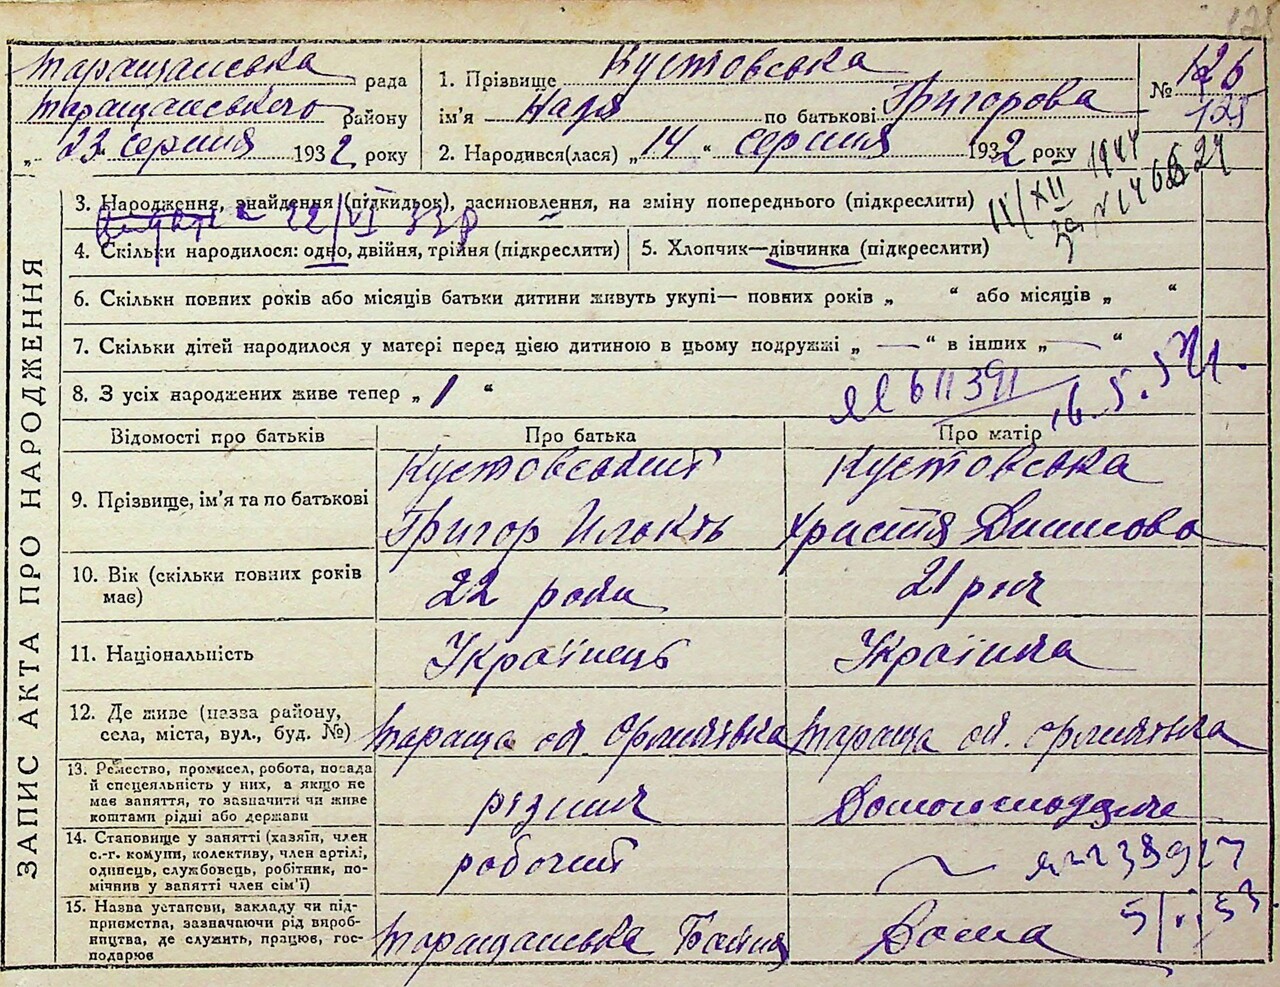 Таращанська рада
Таращанського району
„ 23 серпня 1932 року
1. Прізвище Кустовська
ім'я по батькові Григорова
2. Народився(лася) „14“ серпня 1932 року
№ 126
ЗАПИС АКТА ПРО НАРОДЖЕННЯ
3. Народження, знайдення (підкидьок), засиновлення, на зміну попереднього (підкреслити)
22/VI 33 р
4. Скільки народилося: одно, двійня, трійня (підкреслити)
5. Хлопчик—дівчинка (підкреслити)
6. Скільки повних років або місяців батьки дитини живуть укупі— повних років „ “ або місяців „ “
7. Скільки дітей народилося у матері перед цією дитиною в цьому подружжі „ — “ в інших „ — “
8. З усіх народжених живе тепер „ 1 “
Відомості про батьків Про батька Про матір
9. Прізвище, ім'я та по батькові
Кустовський
Григор
Кустовська
Христя
10. Вік (скільки повних років має)
22 роки
21 рік
11. Національність
Українець
Українка
12. Де живе (назва району, села, міста, вул., буд. №)
Тараща
Тараща
13. Ремество, промисел, робота, посада
й спецеяльність у них, а якщо не
має заняття, то зазначити чи живе
коштами рідні або держави
різник
14. Становище у занятті (хазяїн, член
с.-г. комуни, колективу, член артілі,
одинець, службовець, робітник, по-
мічник у занятті член сім'ї)
робочий
15. Назва установи, закладу чи під-
приємства, зазначаючи рід вироб-
ництва, де служить, працює, гос-
подарює
Таращанська Бойня
Дома